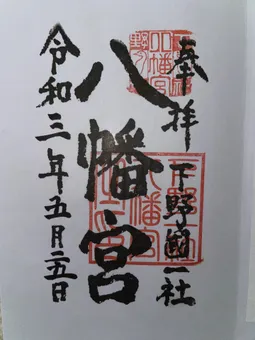 奉拝 下野國一社
八幡宮
令和三年五月二五日